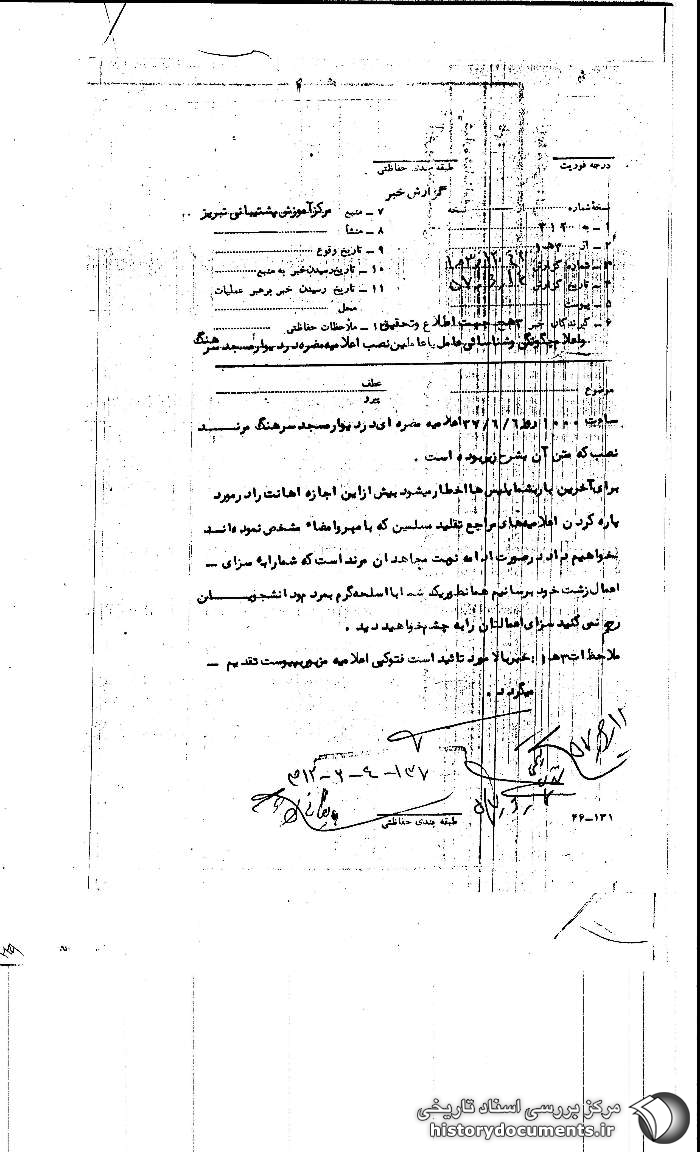 درجه فوریت
طبقه بندی حفاظتی
گزارش خبر
نسخه شماره نسخه
۷ ـ منبع مرکز آموزش پشتیبانی تبریز
۱ ـ به ۳۱۲
۸ ـ منشأ
۲ ـ از ۳هـ۱
۹ ـ تاریخ وقوع
۳ ـ شماره گزارش
۱۰ ـ تاریخ رسیدن خبر به منبع
۴ ـ تاریخ گزارش
۱۱ ـ تاریخ رسیدن خبر برهبر عملیات
۵ ـ پیوست
محل
۶ ـ گیرندگان خبر جهت اطلاع و تحقیق
ملاحظات حفاظتی
واعلام چگونگی وشناسائی عامل یا عاملین نصب اعلامیه مضره در دیوار مسجد سرهنگ
موضوع
عطف
پیرو
ساعت ۱۰۰۰ روز ۳۷/۶/۶ اعلامیه مضره ای در دیوار مسجد سرهنگ مرند
نصب که متن آن بشرح زیر بوده است .
برای آخرین بار بشما پلیس ها اخطار میشود بیش از این اجازه اهانت را در مورد
پاره کردن اعلامیه های مراجع تقلید مسلمین که با مهر و امضاء مشخص نموده اند
نخواهیم داد در صورت ادامه نهضت مجاهدان مرند است که شما را به سزای ـ
اعمال زشت خود برسانیم همانطوریکه شما با اسلحه گرم بمردم و دانشجویان
رحم نمی کنید سزای اعمالتان را به چشم خواهید دید .
ملاحظات ۳هـ۱ : خبر بالا مورد تائید است فتوکپی اعلامیه مزبور بپیوست تقدیم ـ
میگردد .
طبقه بندی حفاظتی
۴۶-۱۳۱
مرکز بررسی اسناد تاریخی
historydocuments.ir